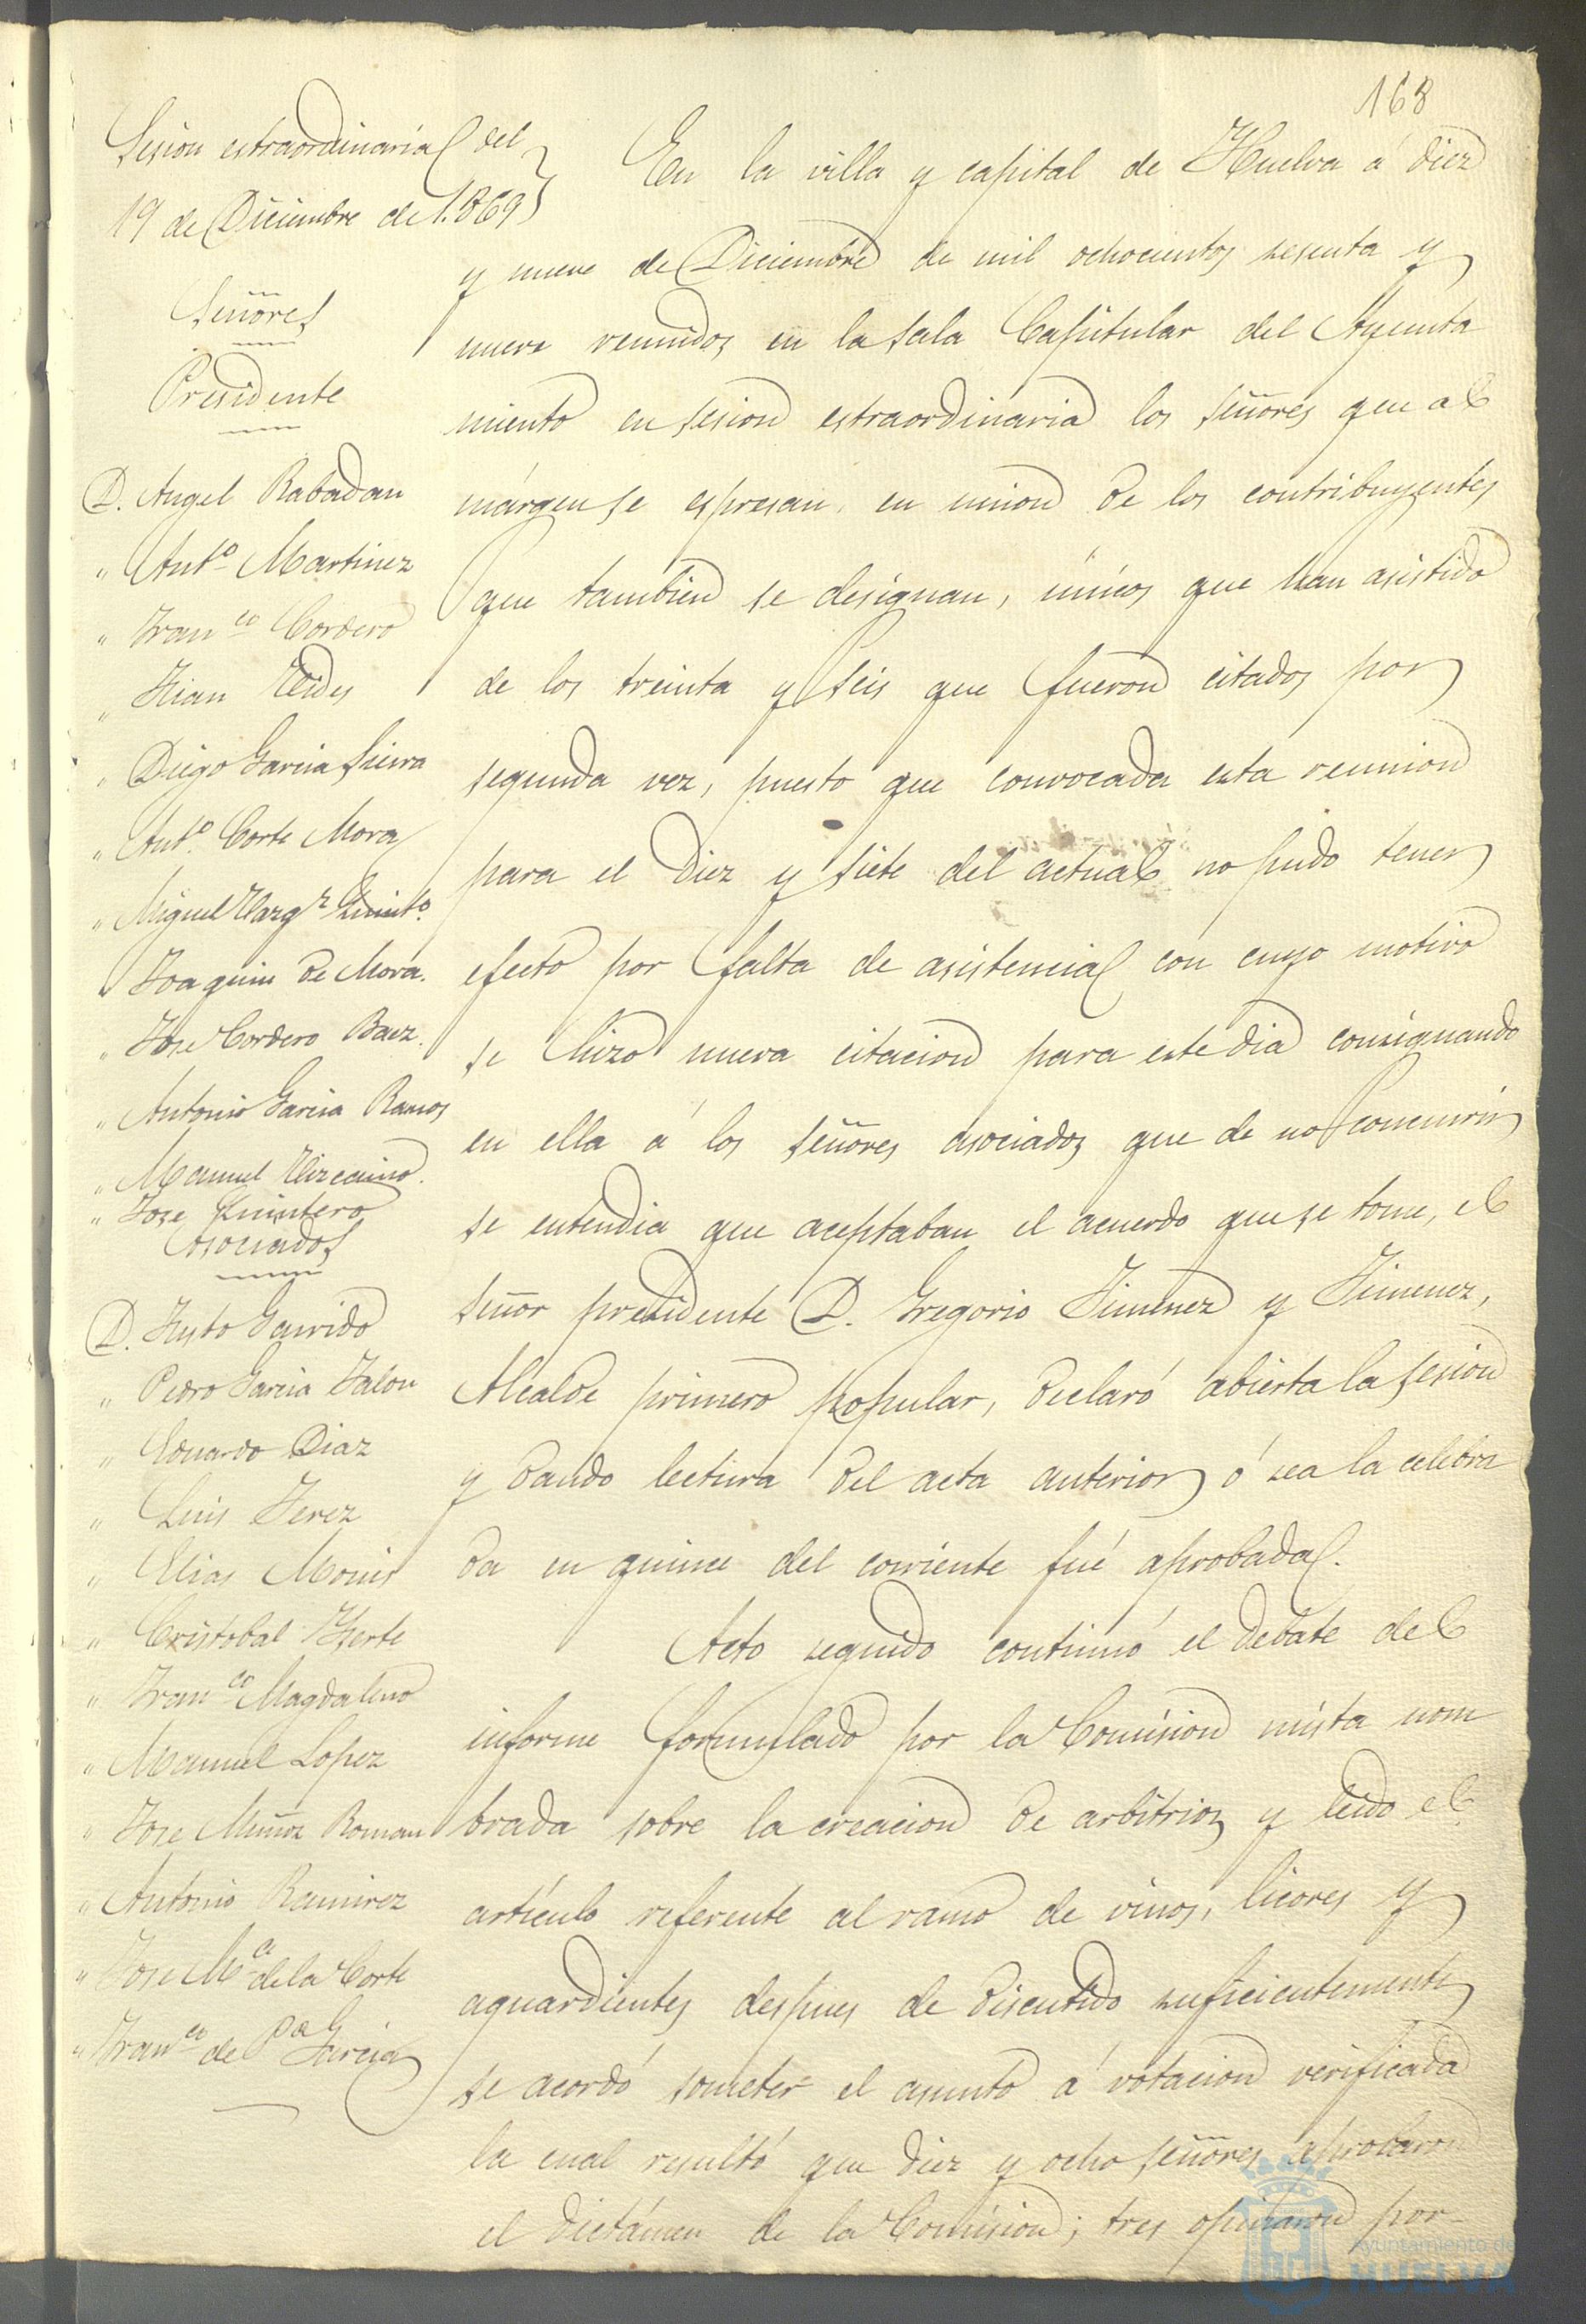 168
Sesion estraordinaria del
19 de Diciembre de 1.869
Señores
Presidente
D. Angel Rabadan
" Ant.º Martinez
" Fran.co Cordero
" Juan Vides
" Diego Garcia Sierra
" Ant.º Corte Mora
" Miguel Vazq.z Quint.º
" Joaquin de Mora.
" Jose Cordero Baez.
" Antonio Garcia Ramos
" Manuel Vizcaino.
" Jose Quintero
Asociados
D. Justo Garrido
" Pedro Garcia Jalon
" Eduardo Diaz
" Luis Jerez
" Elias Monis
" Cristobal
" Fran.co Magdaleno
" Manuel Lopez
" Jose Muñoz Roman
" Antonio Ramirez
" Jose M.a de la Corte
" Fran.co de P.a Garcia
En la villa y capital de Huelva á diez
y nueve de Diciembre de mil ochocientos sesenta y
nueve reunidos en la sala Capitular del Ayunta
miento en sesion estraordinaria los señores que al
márgen se espresan, en union de los contribuyentes
que tambien se designan, únicos que han asistido
de los treinta y seis que fueron citados por
segunda vez, puesto que convocada esta reunion
para el diez y siete del actual no pudo tener
efecto por falta de asistencia con cuyo motivo
se hizo nueva citacion para este dia consignando
en ella á los señores asociados que de no concurrir
se entendia que aceptaban el acuerdo que se tome, el
señor presidente D. Gregorio Jimenez y Jimenez,
Alcalde primero popular, declaró abierta la sesion
y dando lectura del acta anterior ó sea la celebra
da en quince del corriente fué aprobada.
Acto seguido continuó el debate del
informe formulado por la Comision mista nom
brada sobre la creacion de arbitrios y leido el
artículo referente al ramo de vinos, licores y
aguardientes despues de discutido suficientemente
se acordó someter el asunto á votacion verificada
la cual resultó que diez y ocho señores aprobaron
el dictámen de la Comision; tres opinaron por
Ayuntamiento de
HUELVA